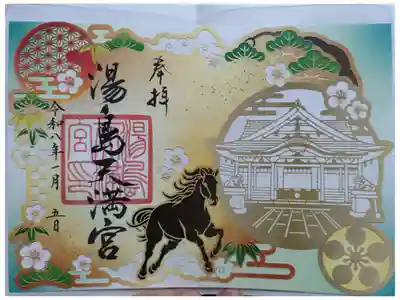 奉拝
湯島天満宮
令和八年一月五日